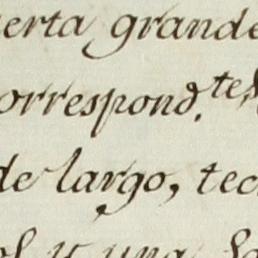 erta grande
orrespond.tes
de largo, tec
y una